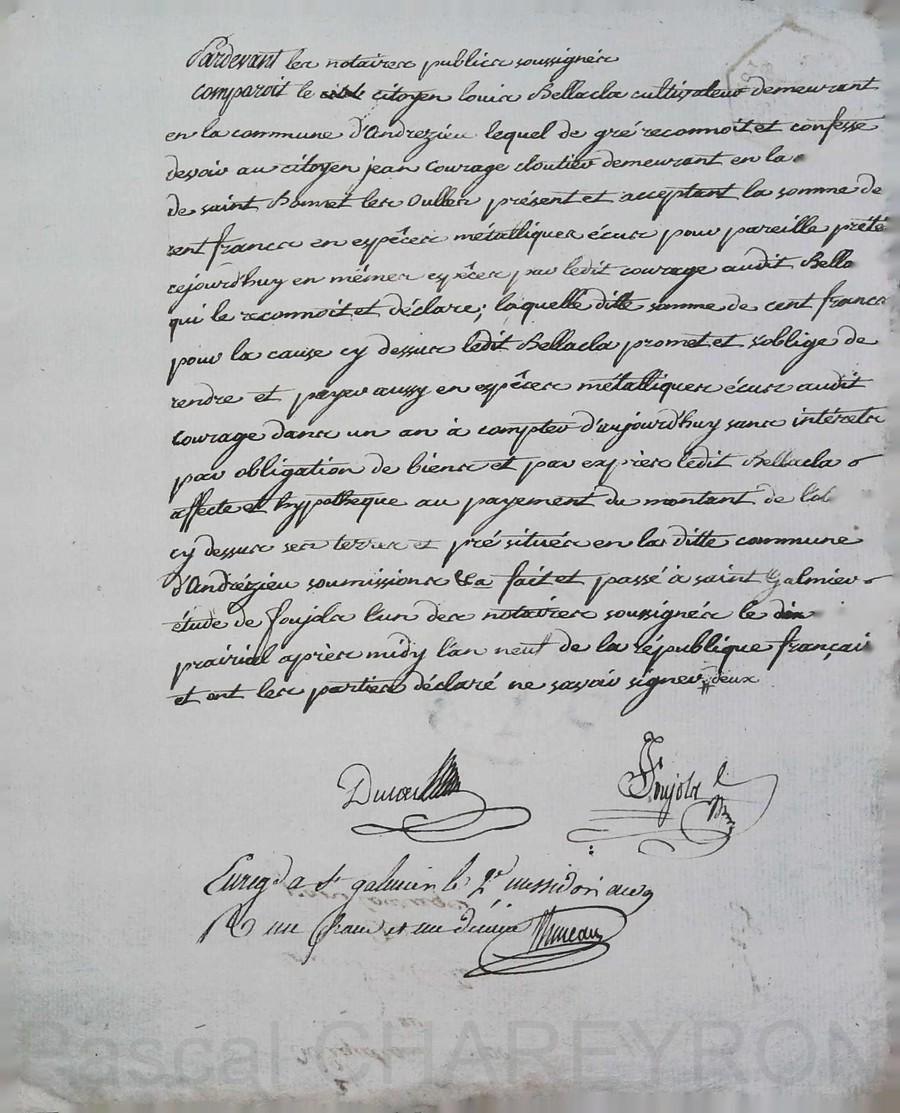 Pardevant les notaires publics soussignés
comparoit le citoyen louis Bellacla cultivateur demeurant
en la commune d'Andrezieu lequel de gré reconnoit et confesse
devoir au citoyen jean Courage cloutier demeurant en la
de saint Bonnet les oulles présent et acceptant la somme de
cent francs en espêces métalliques écus pour pareille prêté
cejourd'huy en mêmes espêces par ledit courage audit Bella
qui le reconnoit et déclare; laquelle ditte somme de cent francs
pour la cause cy dessus ledit Bellacla promet et s'oblige de
rendre et payer aussy en espêces métalliques écus audit
courage dans un an à compter d'aujourd'huy sans intérêts
par obligation de biens et par exprès ledit Bellacla
affecte et hypothèque au payement du montant de l'obl
cy dessus ses terres et pré situés en la ditte commune
d'Andrézieu soumissions &a fait et passé à saint Galmier
étude de foujols l'un des notaires soussignés le dix
prairial après midy l'an neuf de la république français
et ont les parties déclaré ne savoir signer deux
Foujols
Enreg à St galmier le 2e messidor an 9
R un franc et un décime
Pascal CHAREYRON